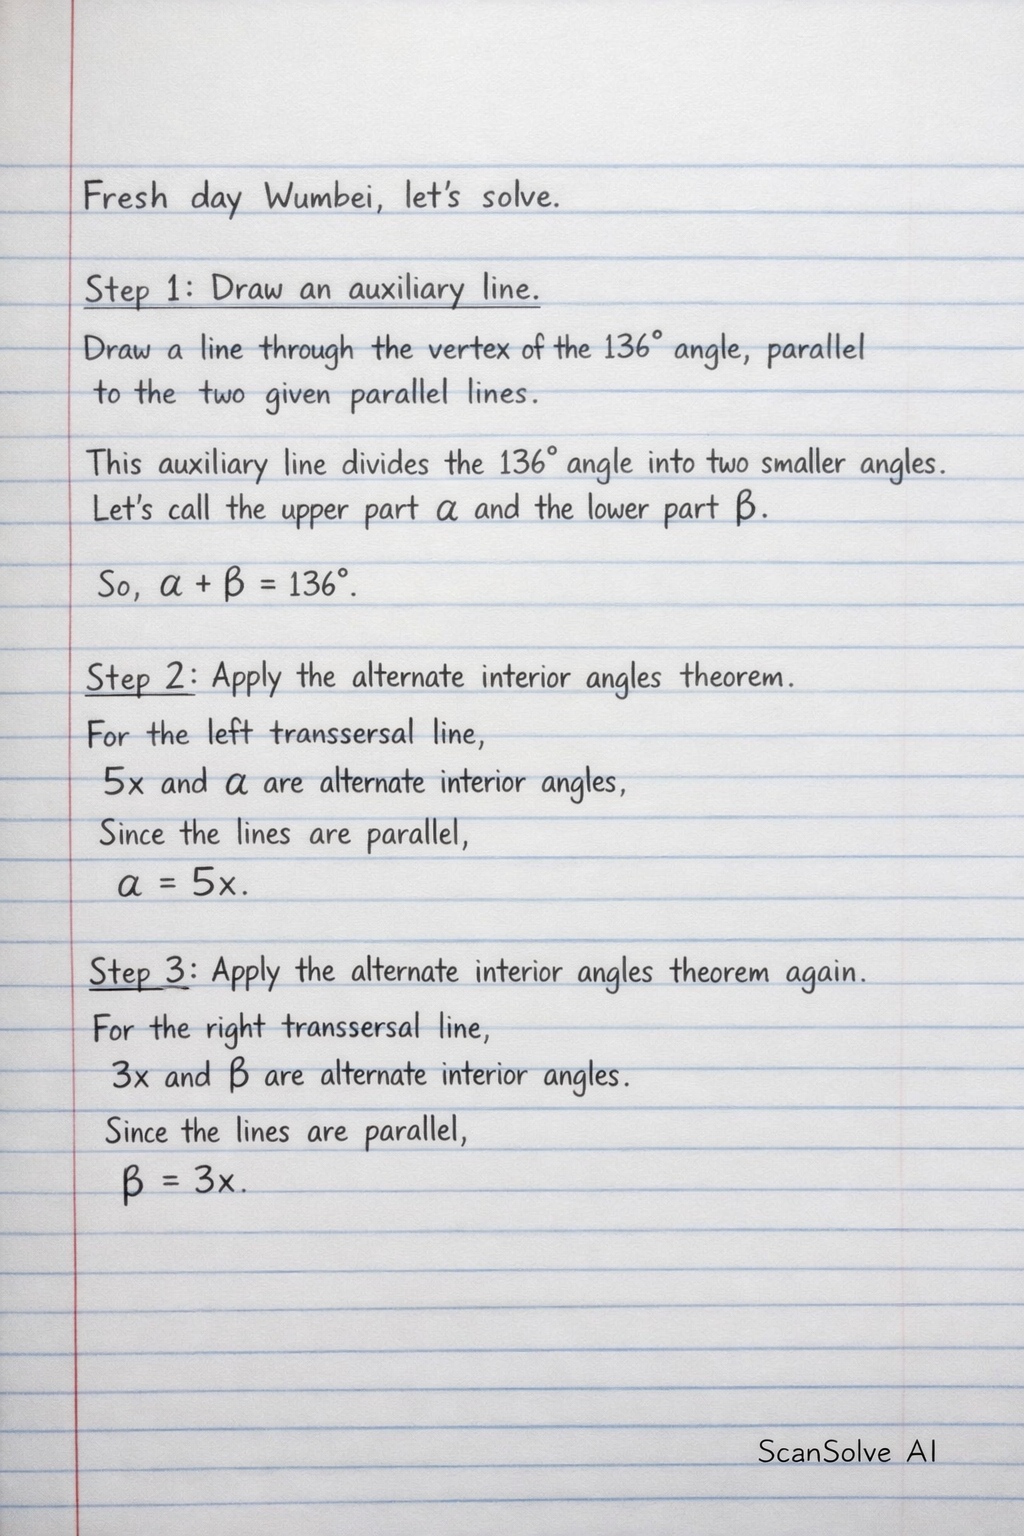 Fresh day Wumbei, let's solve.
Step 1: Draw an auxiliary line.
Draw a line through the vertex of the 136° angle, parallel
to the two given parallel lines.
This auxiliary line divides the 136° angle into two smaller angles.
Let's call the upper part α and the lower part β.
So, α + β = 136°.
Step 2: Apply the alternate interior angles theorem.
For the left transsersal line,
5x and α are alternate interior angles,
Since the lines are parallel,
α = 5x.
Step 3: Apply the alternate interior angles theorem again.
For the right transsersal line,
3x and β are alternate interior angles.
Since the lines are parallel,
β = 3x.
ScanSolve AI